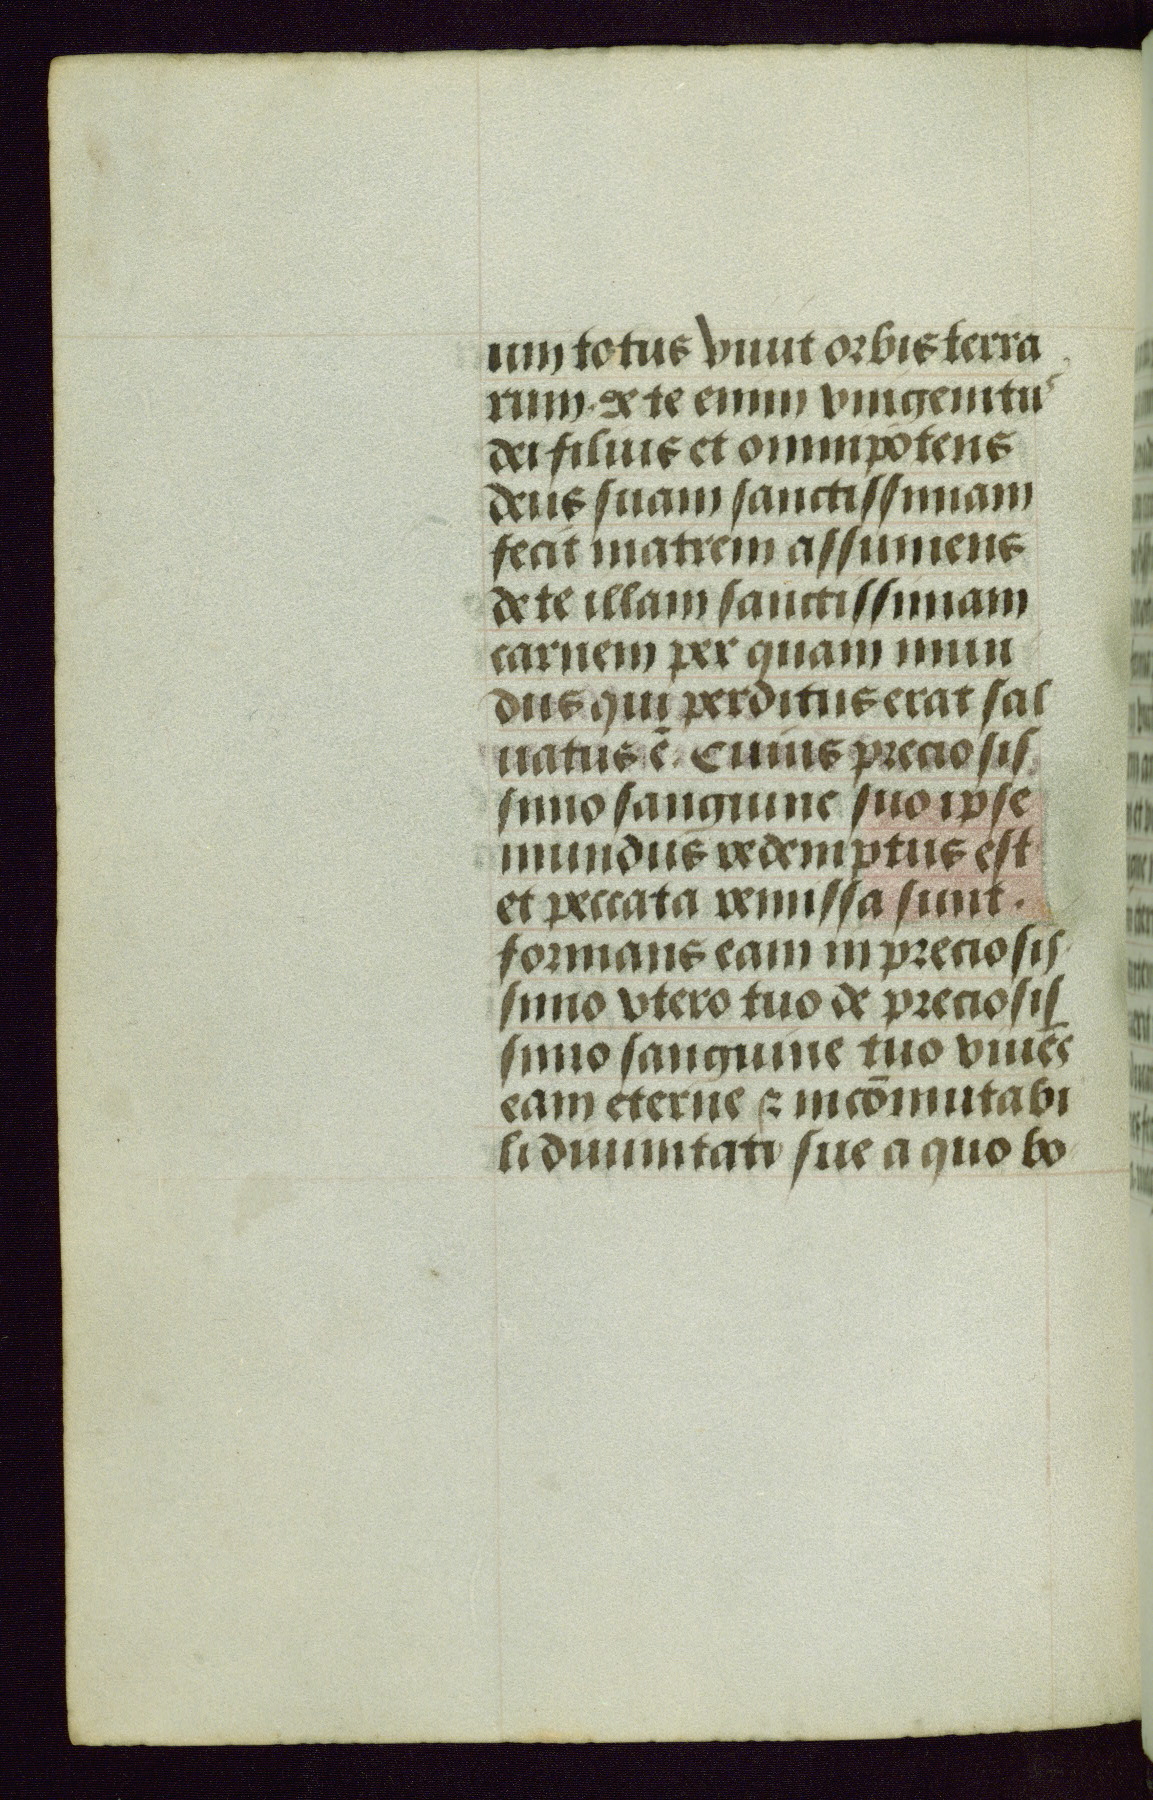 um totus viuit orbis terra
rum. De te enim vnigenitus
dei filius et omnipotens
deus suam sanctissimam
fecit matrem assumens
de te illam sanctissimam
carnem per quam mun
dus qui perditus erat sal
uatus ē. Cuius preciosis
simo sanguine suo ipse
mundus redemptus est
et peccata remissa sunt.
formans eam in preciosis
simo vtero tuo de preciosis
simo sanguine tuo vniēs
eam eterne ⁊ incōmutabi
li diuinitati sue a quo bo